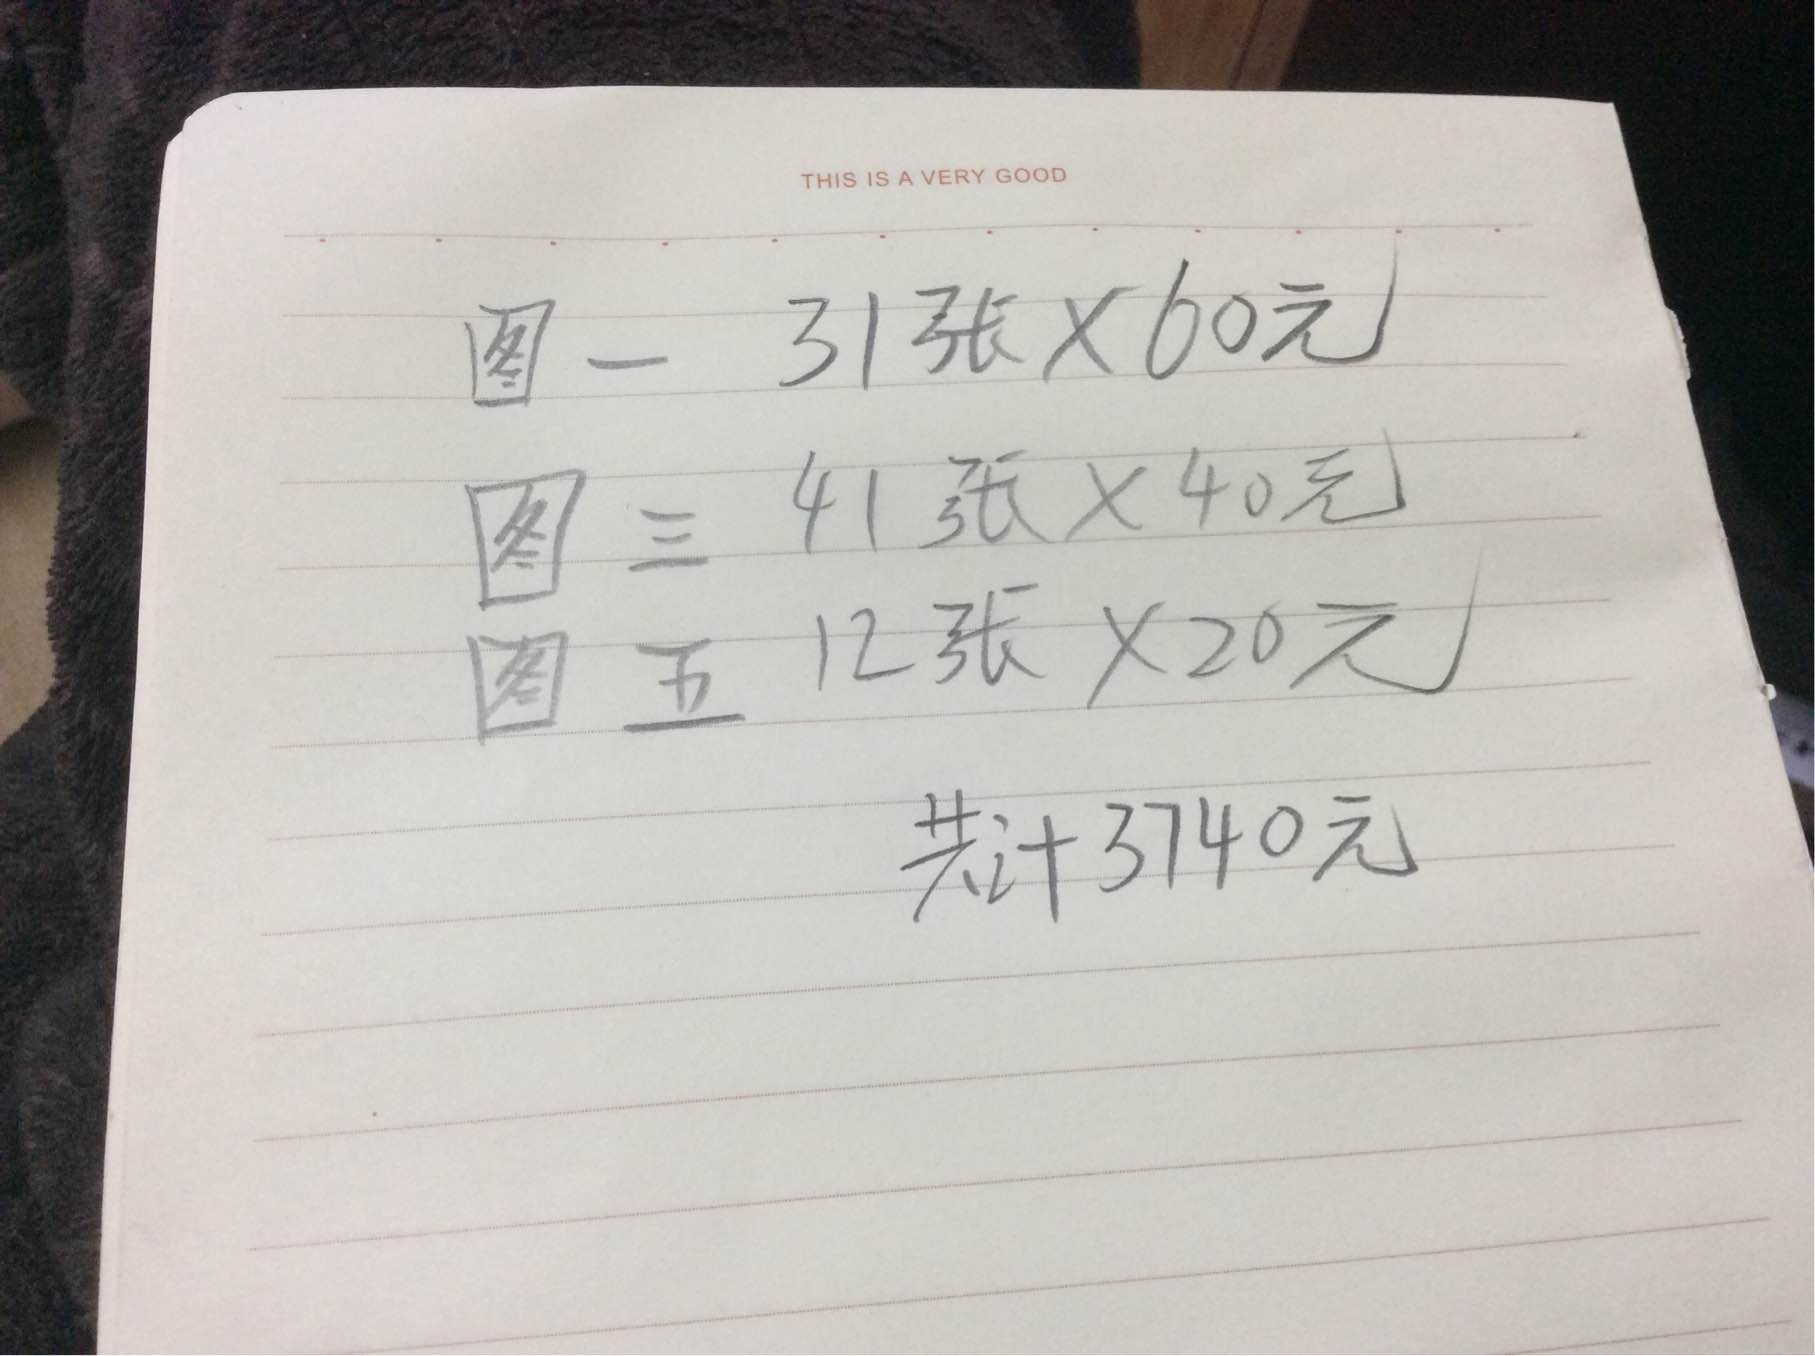 THIS IS A VERY GOOD
图一 31张×60元
图三 41张×40元
图五 12张×20元
共计3740元